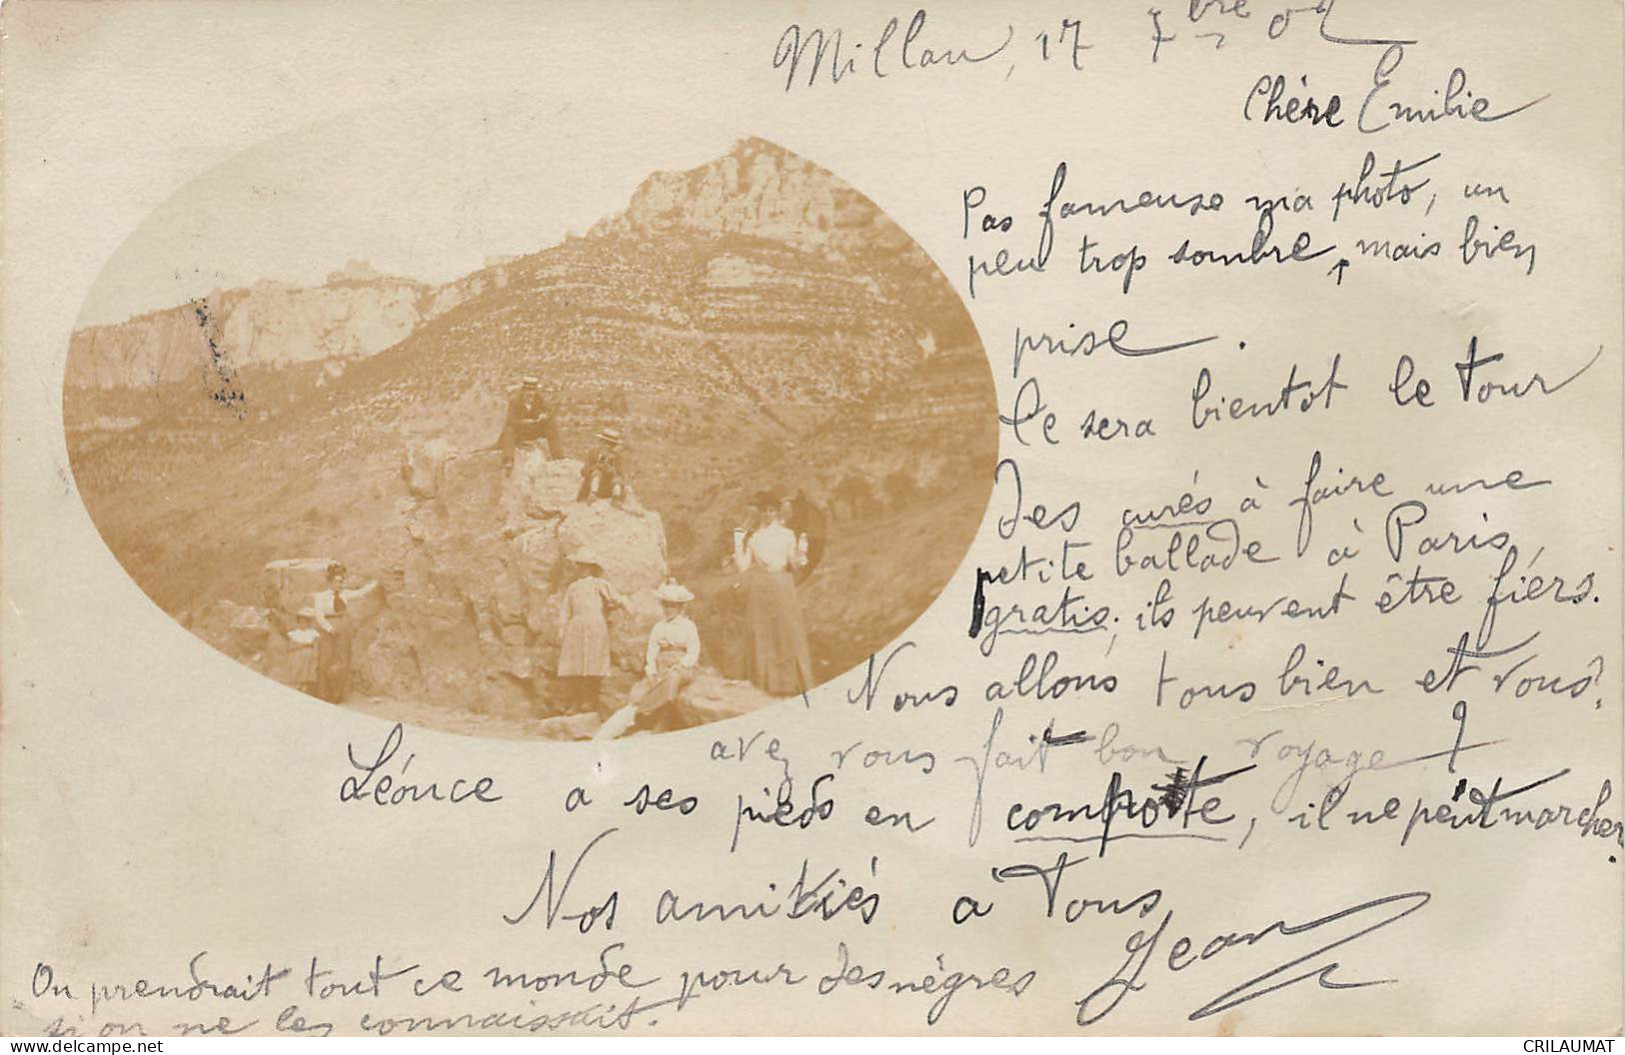 Millau, 17 7bre 02
Chère Emilie
Pas fameuse ma photo, un
peu trop sombre, mais bien
prise.
Ce sera bientot le tour
des curés à faire une
petite ballade à Paris,
gratis; ils peuvent être fiers.
Nous allons tous bien et vous?
avez vous fait bon voyage?
Léonce a ses pieds en compotte, il ne peut marcher.
Nos amitiés à Tous
Jean
On prendrait tout ce monde pour des nègres
si on ne les connaissait.
CRILAUMAT